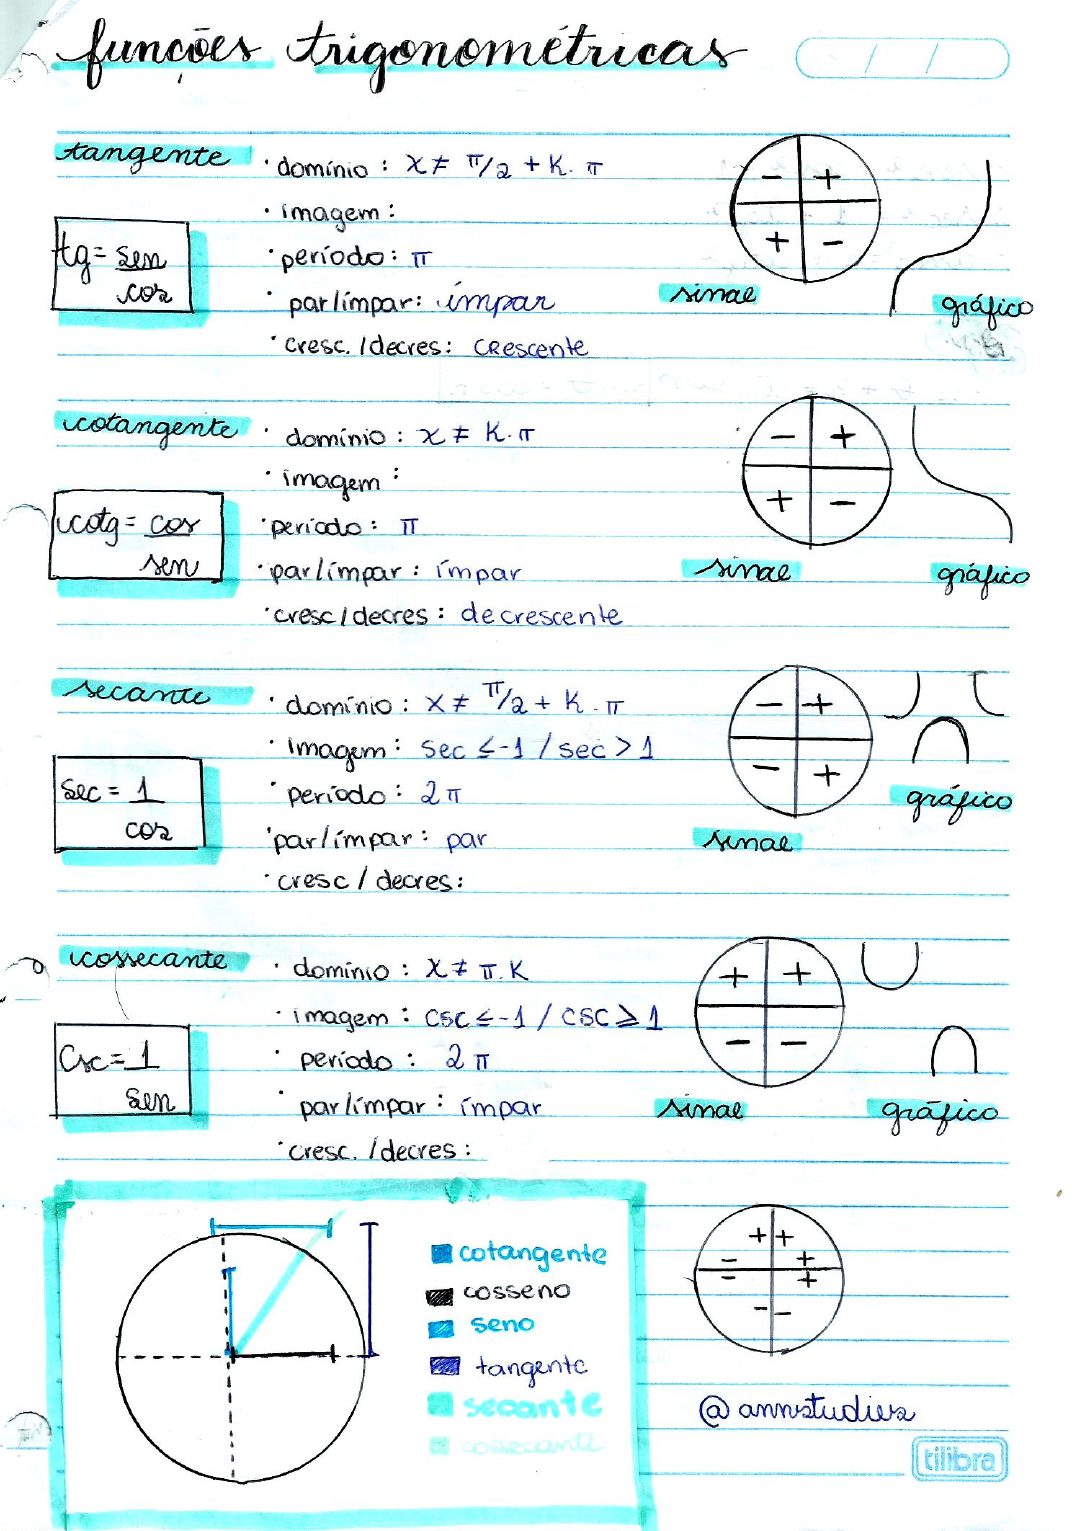 funções trigonométricas
/ /
tangente
tg = sen
cos
· domínio : x ≠ π/2 + K. π
· imagem :
· período : π
· par/ímpar: ímpar
· cresc. /decres: crescente
- +
+ -
sinal
gráfico
cotangente
cotg = cos
sen
· domínio : x ≠ K.π
· imagem :
· período : π
· par/ímpar : ímpar
· cresc/decres : decrescente
- +
+ -
sinal
gráfico
secante
sec = 1
cos
· domínio : x ≠ π/2 + K . π
· imagem : sec ≤ -1 / sec > 1
· período : 2π
· par/ímpar : par
· cresc / decres :
- +
- +
sinal
gráfico
cossecante
csc = 1
sen
· domínio : x ≠ π.K
· imagem : csc ≤ -1 / csc ≥ 1
· período : 2π
· par/ímpar : ímpar
· cresc. /decres :
+ +
- -
sinal
gráfico
cotangente
cosseno
seno
tangente
secante
cosecante
+ +
- +
- +
- -
@annstudies
tilibra